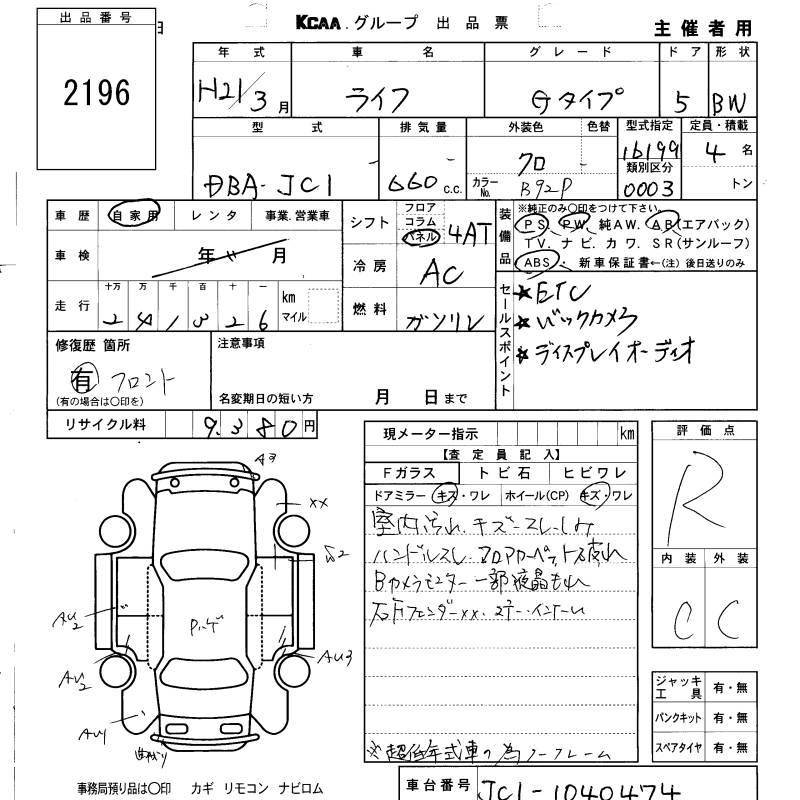 出品番号
2196
KCAA.グループ 出品票
主催者用
年式 車名 グレード ドア 形状
H21/3月 ライフ Gタイプ 5 BW
型式 排気量 外装色 色替 型式指定 定員・積載
16199 4名
DBA-JC1 660 c.c. クロ
類別区分
カラーNo. B92P 0003 トン
車歴 自家用 レンタ 事業.営業車
シフト フロア コラム パネル 4AT
車検 年 月
冷房 AC
走行 十万 万 千 百 十 一 km マイル
2 4 1 3 2 6
燃料 ガソリン
装備品 ※純正のみ〇印をつけて下さい。
PS、PW、純AW、AB(エアバック)
TV、ナビ、カワ、SR(サンルーフ)
ABS・ 新車保証書←(注)後日送りのみ
セールスポイント
★ETC
★バックカメラ
★ディスプレイオーディオ
修復歴 箇所
有 フロント
(有の場合は〇印を)
注意事項
名変期日の短い方 月 日まで
リサイクル料 9,380円
現メーター指示 km
【査定員記入】
Fガラス トビ石 ヒビワレ
ドアミラー キズ・ワレ ホイール(CP) キズ・ワレ
室内汚れ、キズ
ハンドルスレ
Bカメラモニター一部液晶もれ
右Fフェンダーxx
※超低年式車の為ノークレーム
評価点
R
内装 外装
C C
ジャッキ工具 有・無
パンクキット 有・無
スペアタイヤ 有・無
A3
xx
S2
AU2
AU3
AU2
AU1
事務局預り品は〇印 カギ リモコン ナビロム
車台番号 JC1-1040474